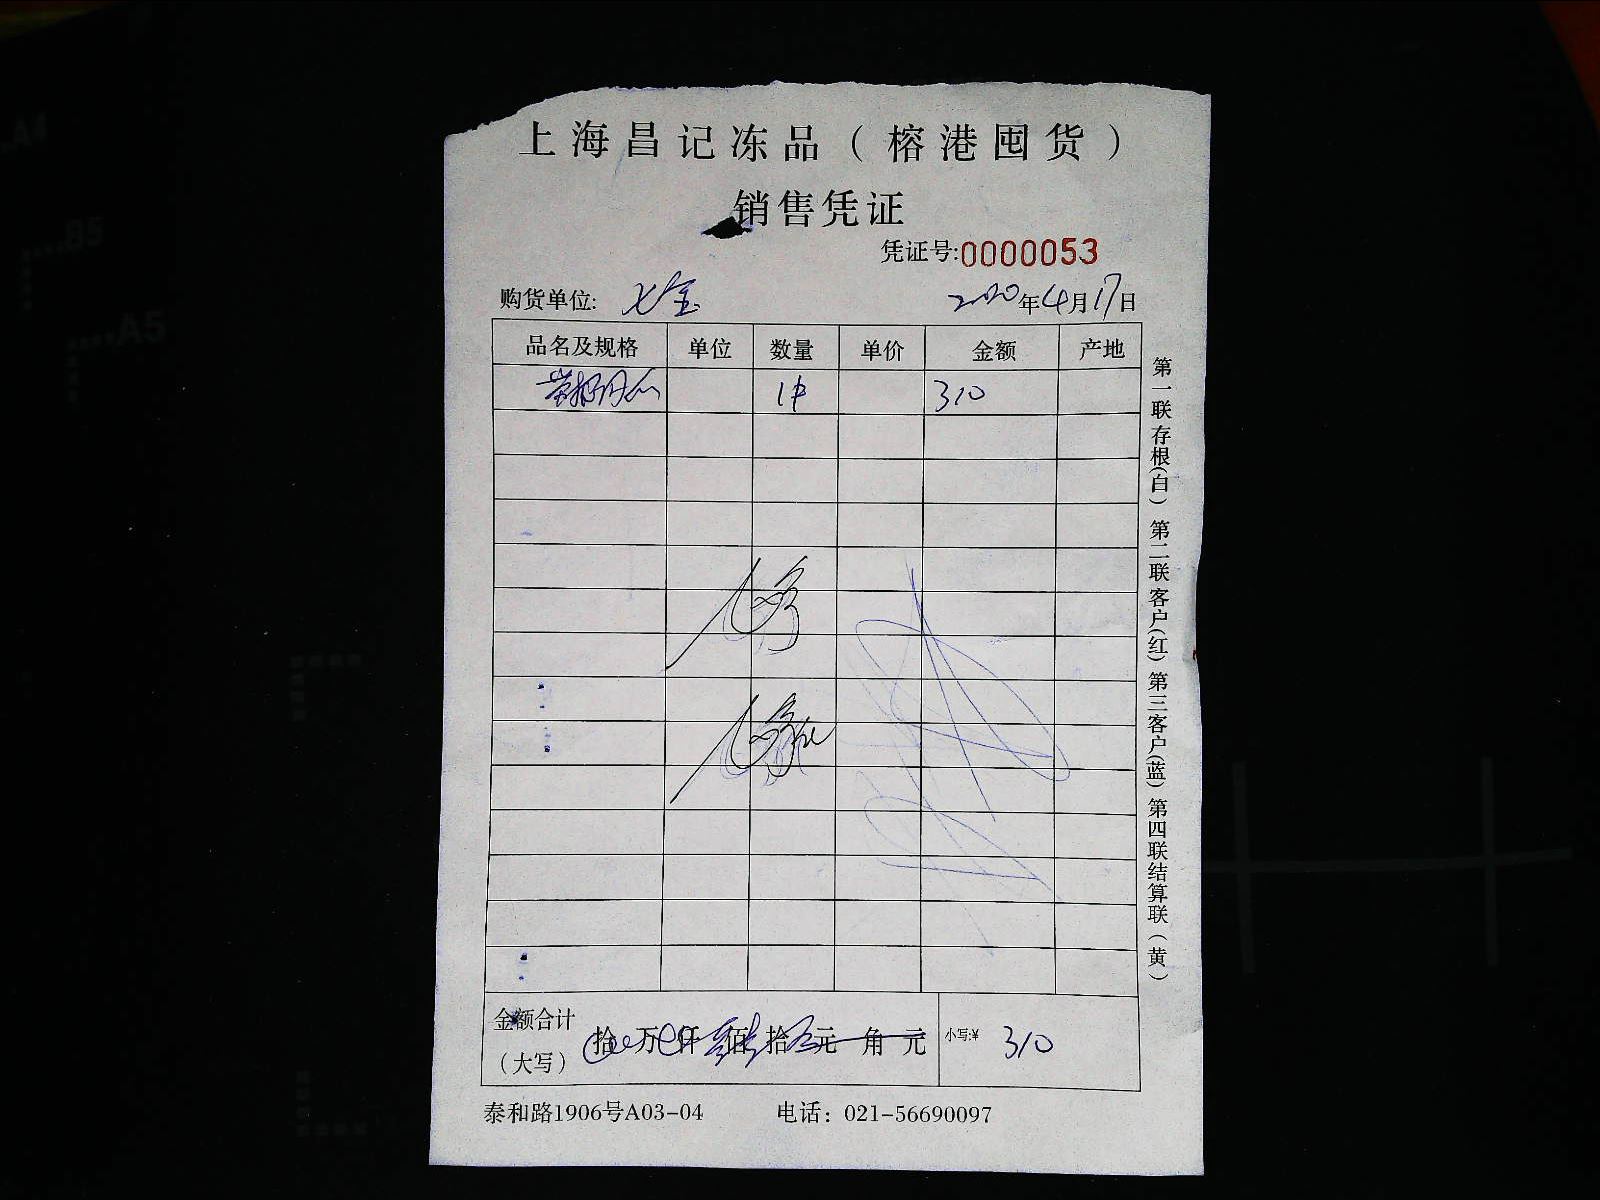 上海昌记冻品（榕港囤货）
销售凭证
凭证号:0000053
购货单位: 七宝 2020年4月17日
品名及规格 单位 数量 单价 金额 产地
1件 310
金额合计（大写） 拾 万 仟 佰 拾 元 角 元 小写:¥ 310
泰和路1906号A03-04 电话：021-56690097
第一联存根(白) 第二联客户(红) 第三客户(蓝) 第四联结算联(黄)
A4
B5
A5